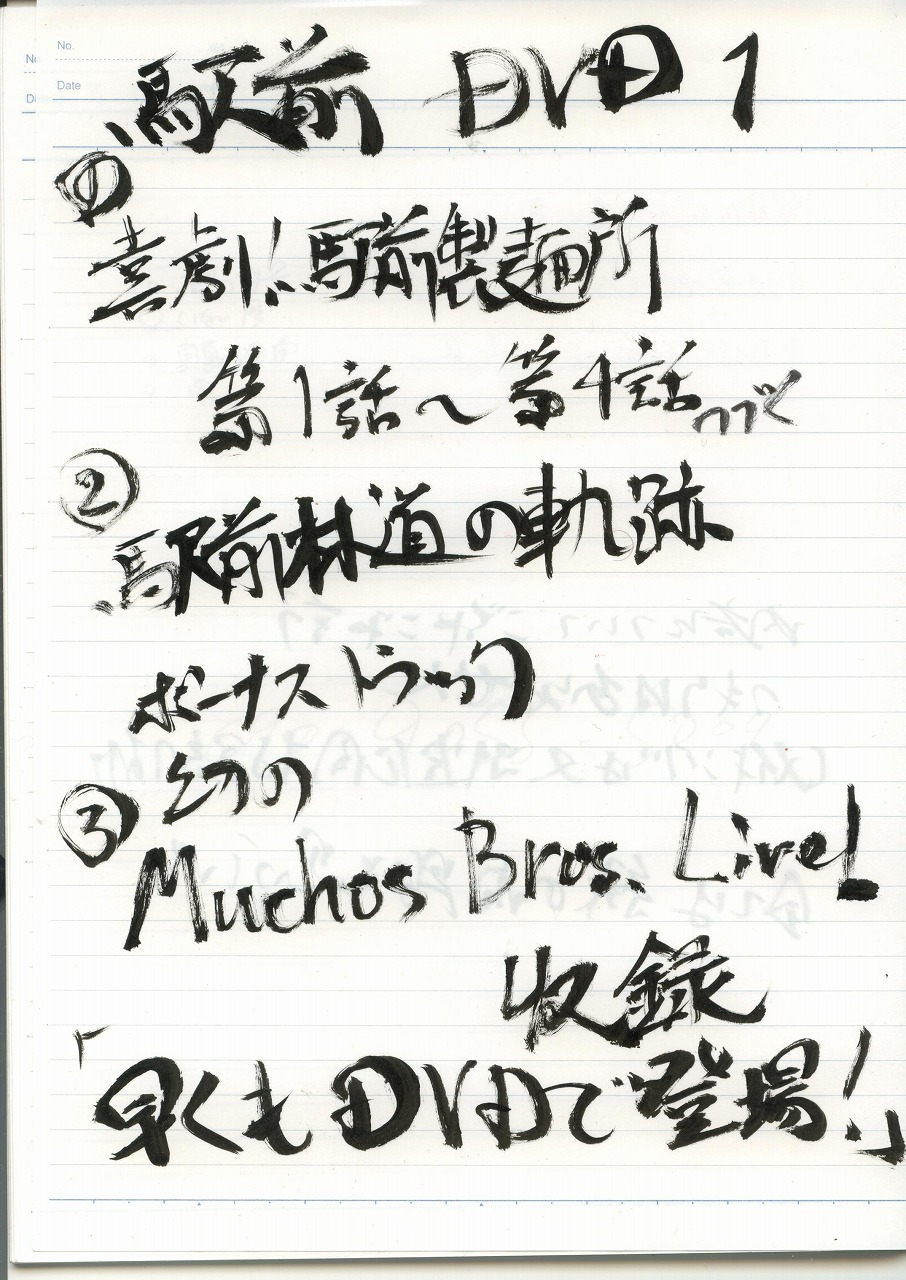 No.
Date
駅前 DVD 1
①
喜劇 駅前製麺所
第1話～第4話 つづく
②
駅前林道の軌跡
ボーナストラック
幻の
③
Muchos Bros. Live!
収録
「早くもDVDで登場!」